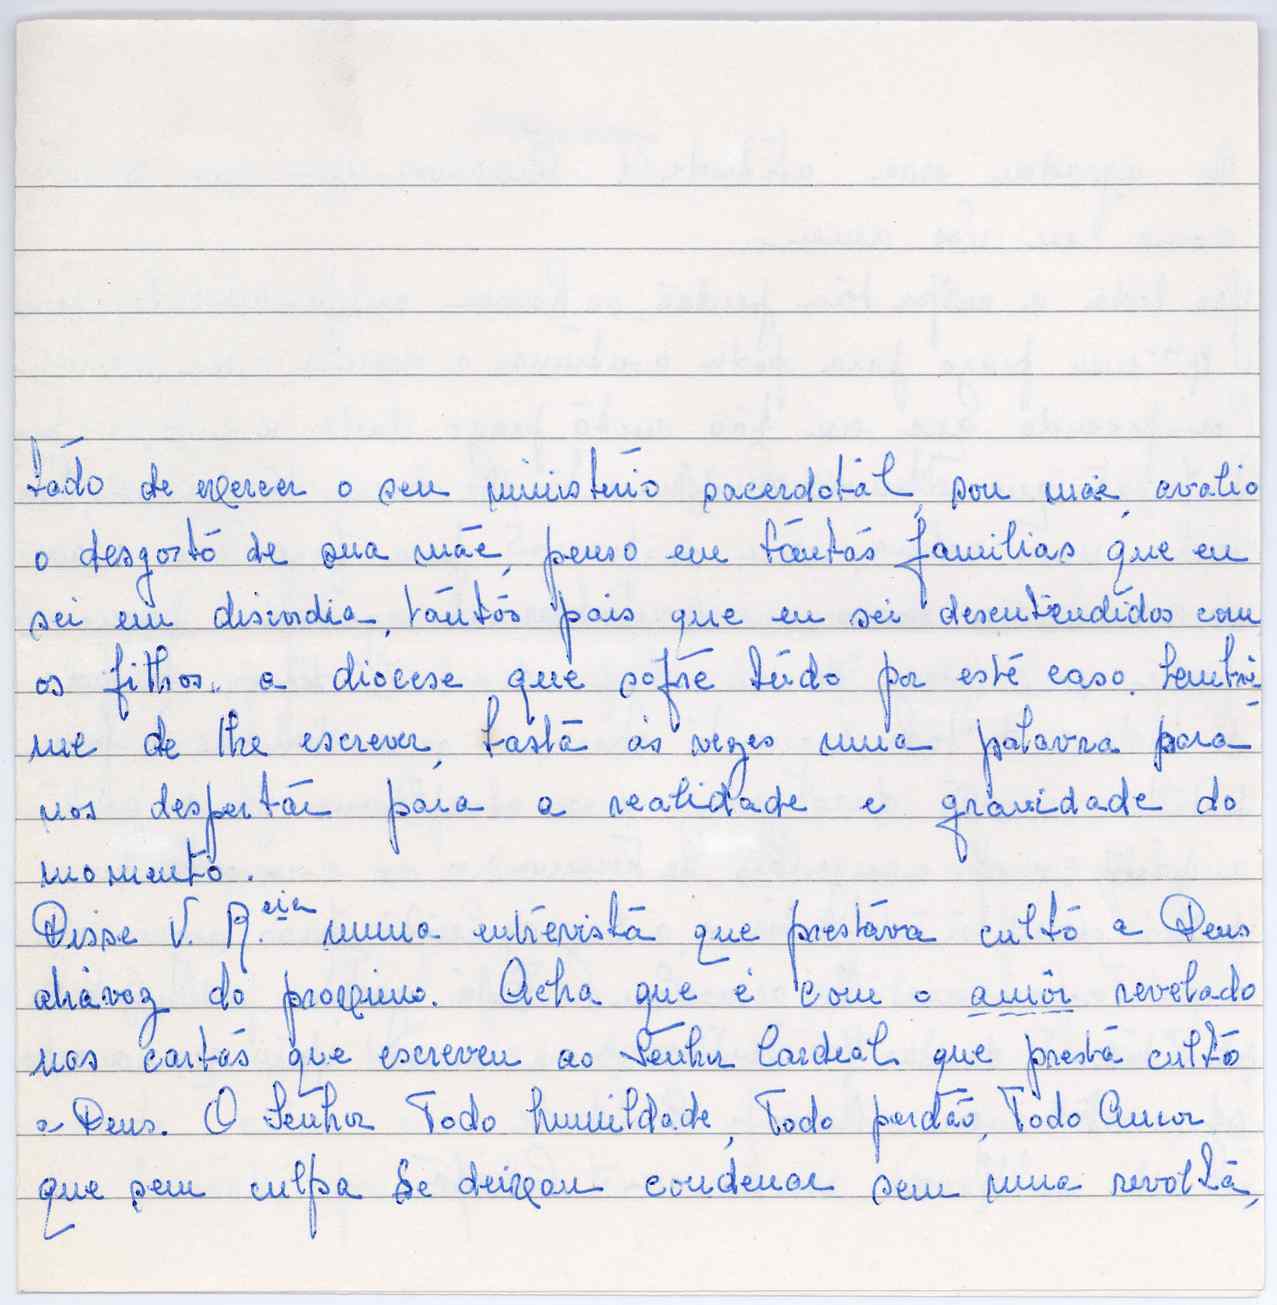 tado de exercer o seu ministério sacerdotal, sou mãe, avalio
o desgosto de sua mãe, penso em tantas familias que eu
sei em discordia, tantos pais que eu sei desentendidos com
os filhos, a diocese que sofre tudo por este caso. Lembrei-
me de lhe escrever, basta ás vezes uma palavra para
nos despertar para a realidade e gravidade do
momento.
Disse V. R.cia numa entrevista que prestava culto a Deus
atravez do proximo. Acha que é com o amôr revelado
nas cartas que escreveu ao Senhor Cardeal que presta culto
a Deus. O Senhor Todo humildade, Todo perdão, Todo Amor
que sem culpa Se deixou condenar sem uma revolta,